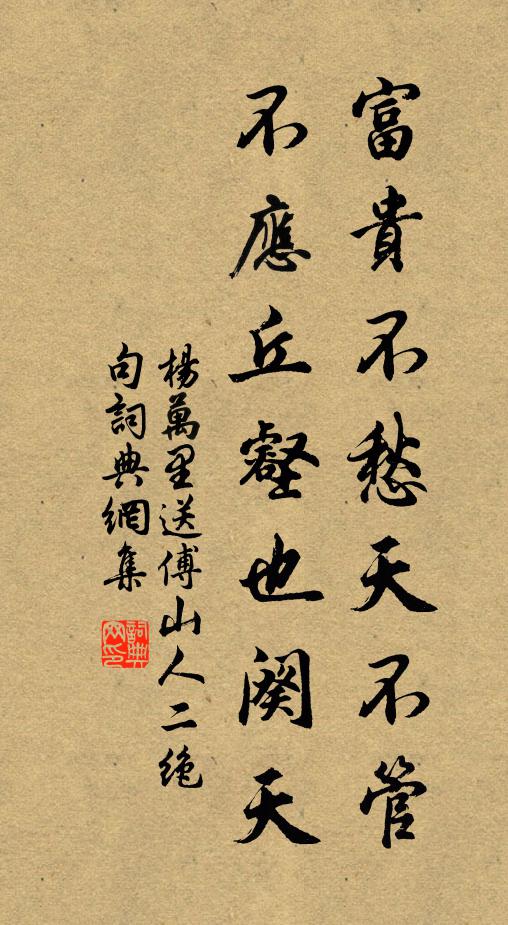 富貴不愁天不管
不應丘壑也關天
楊萬里送傅山人二絶
句詞典網集
詞典
网印